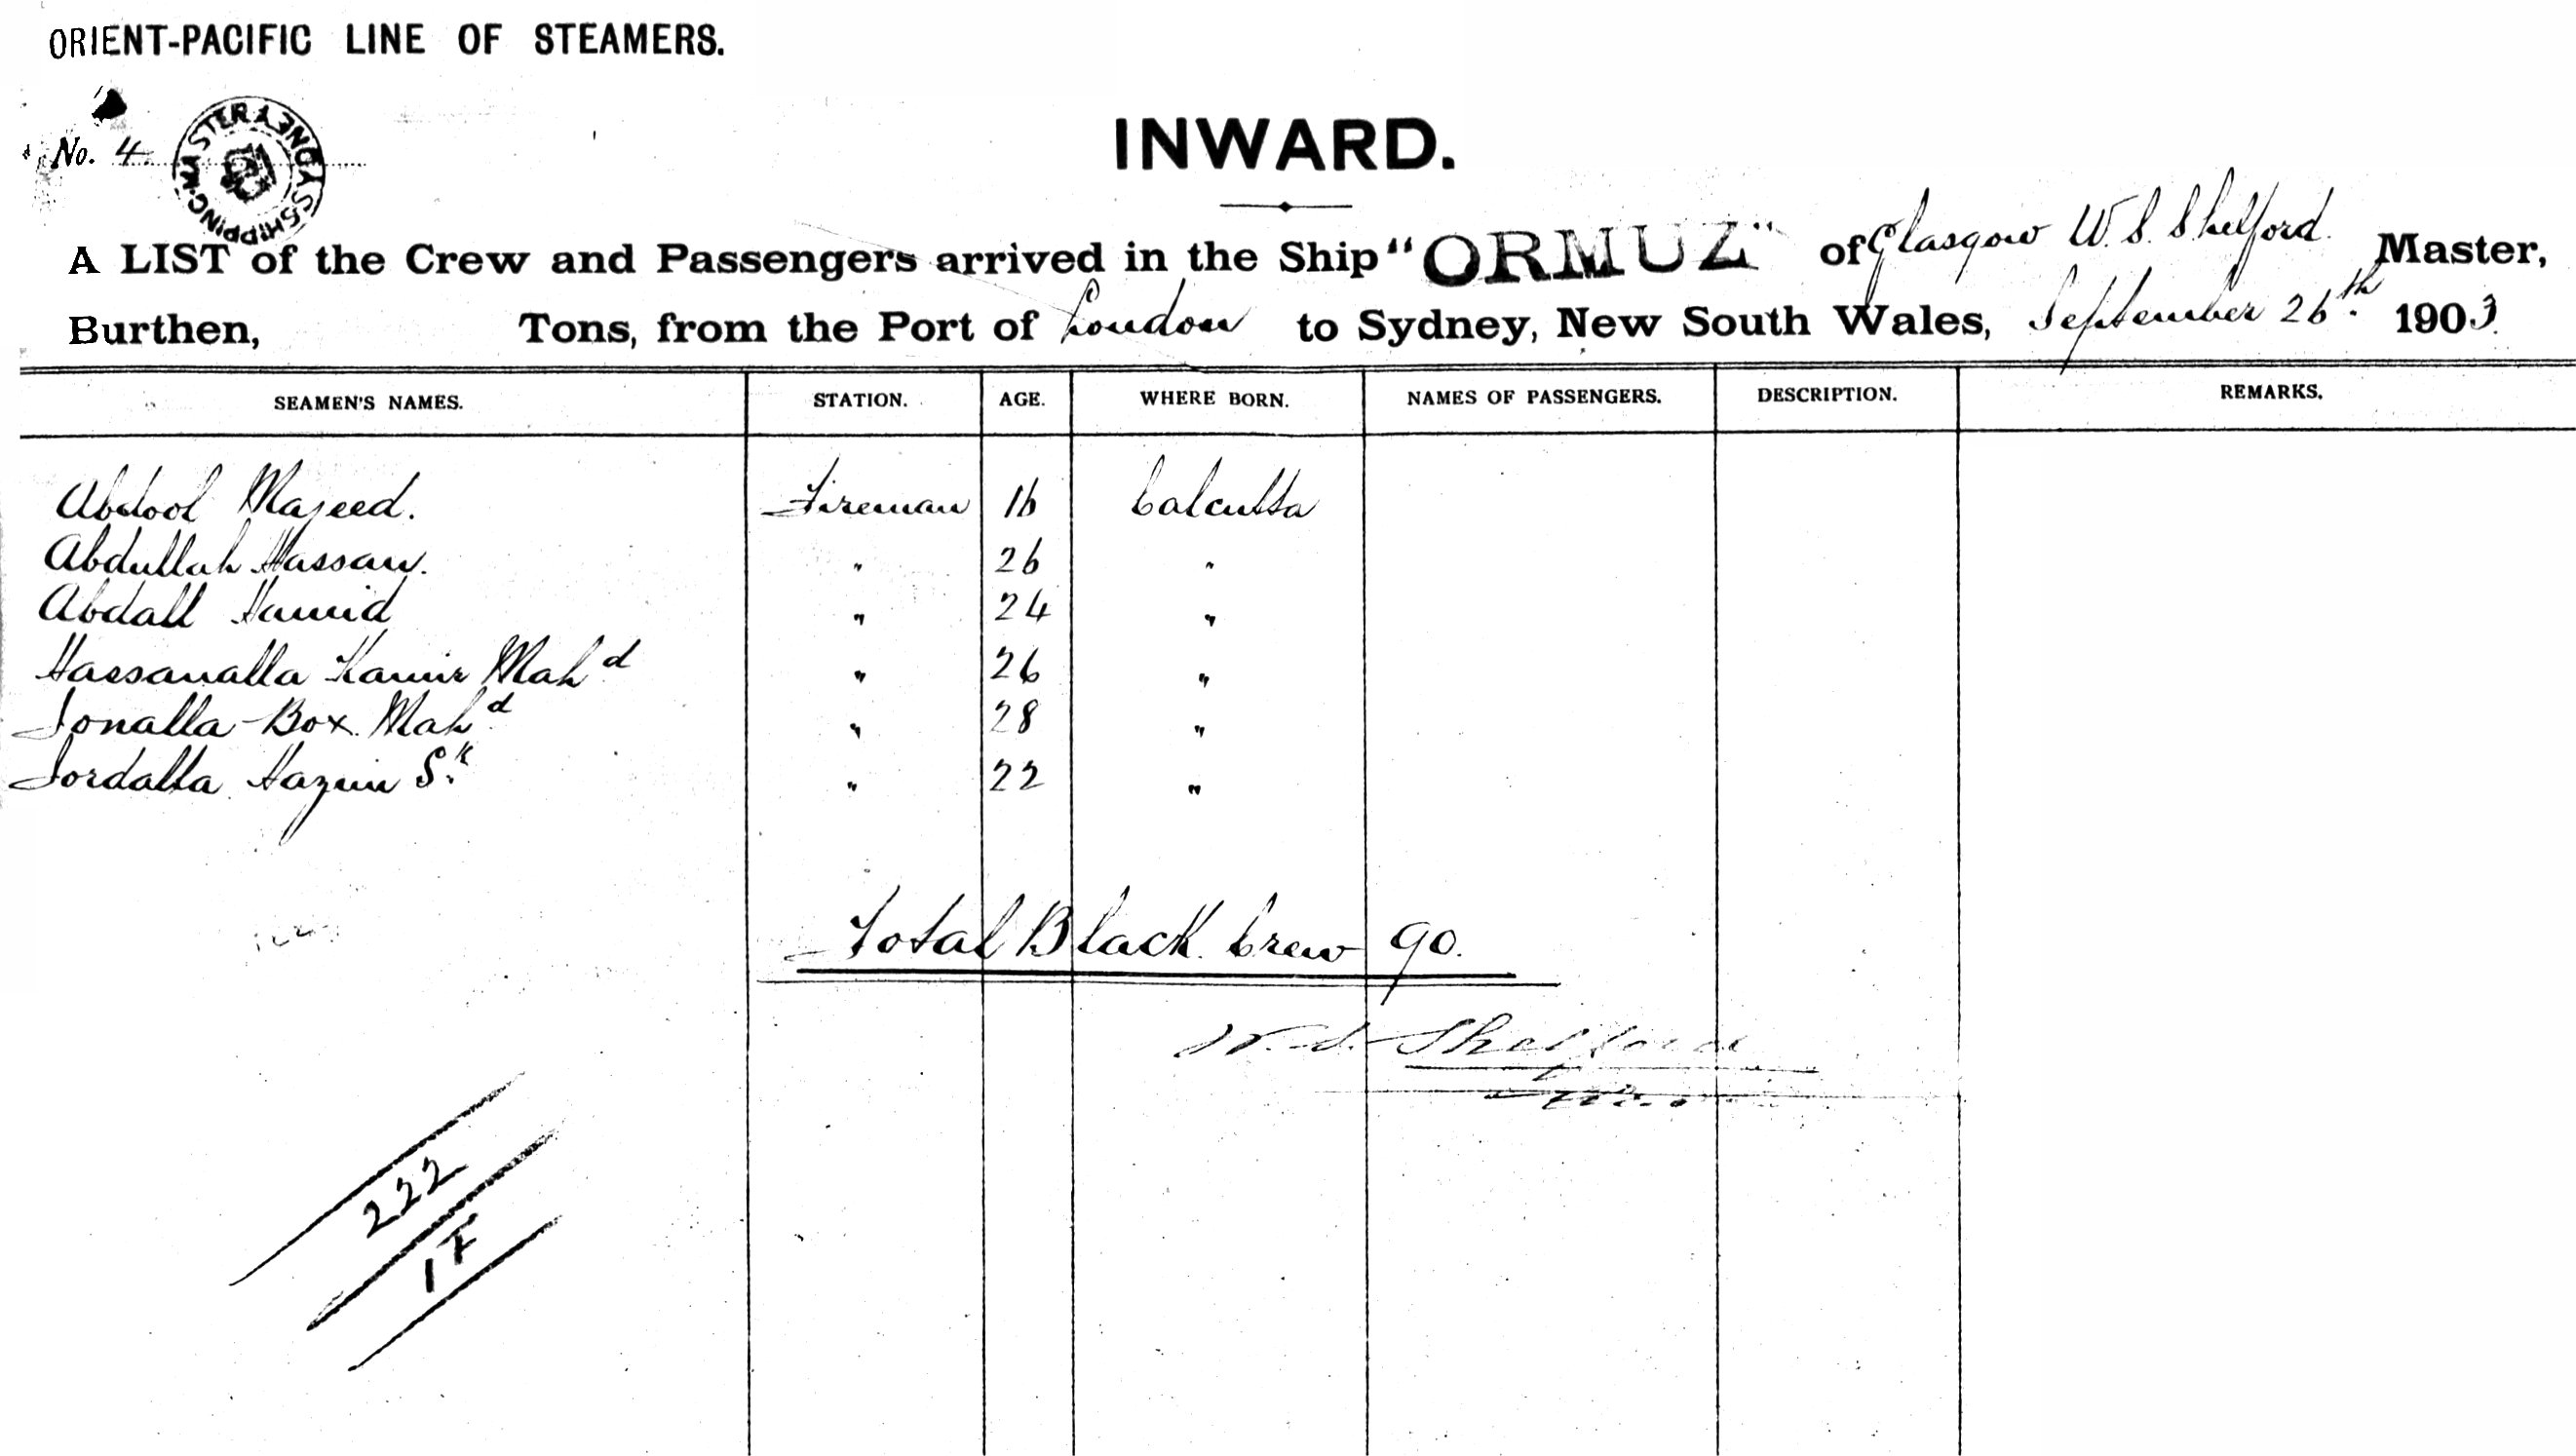 ORIENT-PACIFIC LINE OF STEAMERS.
No. 4
SHIPPING MASTER SYDNEY
INWARD.
A LIST of the Crew and Passengers arrived in the Ship "ORMUZ" of Glasgow W. S. Shelford. Master,
Burthen, Tons, from the Port of London to Sydney, New South Wales, September 26th. 1903.
SEAMEN'S NAMES. STATION. AGE. WHERE BORN. NAMES OF PASSENGERS. DESCRIPTION. REMARKS.
Abdool Majeed. Fireman 16 Calcutta
Abdullah Hassan. " 26 "
Abdall Hamid " 24 "
Hassanalla Kamir Mahd " 26 "
Sonalla Box. Mahd " 28 "
Sordalla Hazim Sk " 22 "
Total Black Crew 90.
W. S. Shelford
222
17